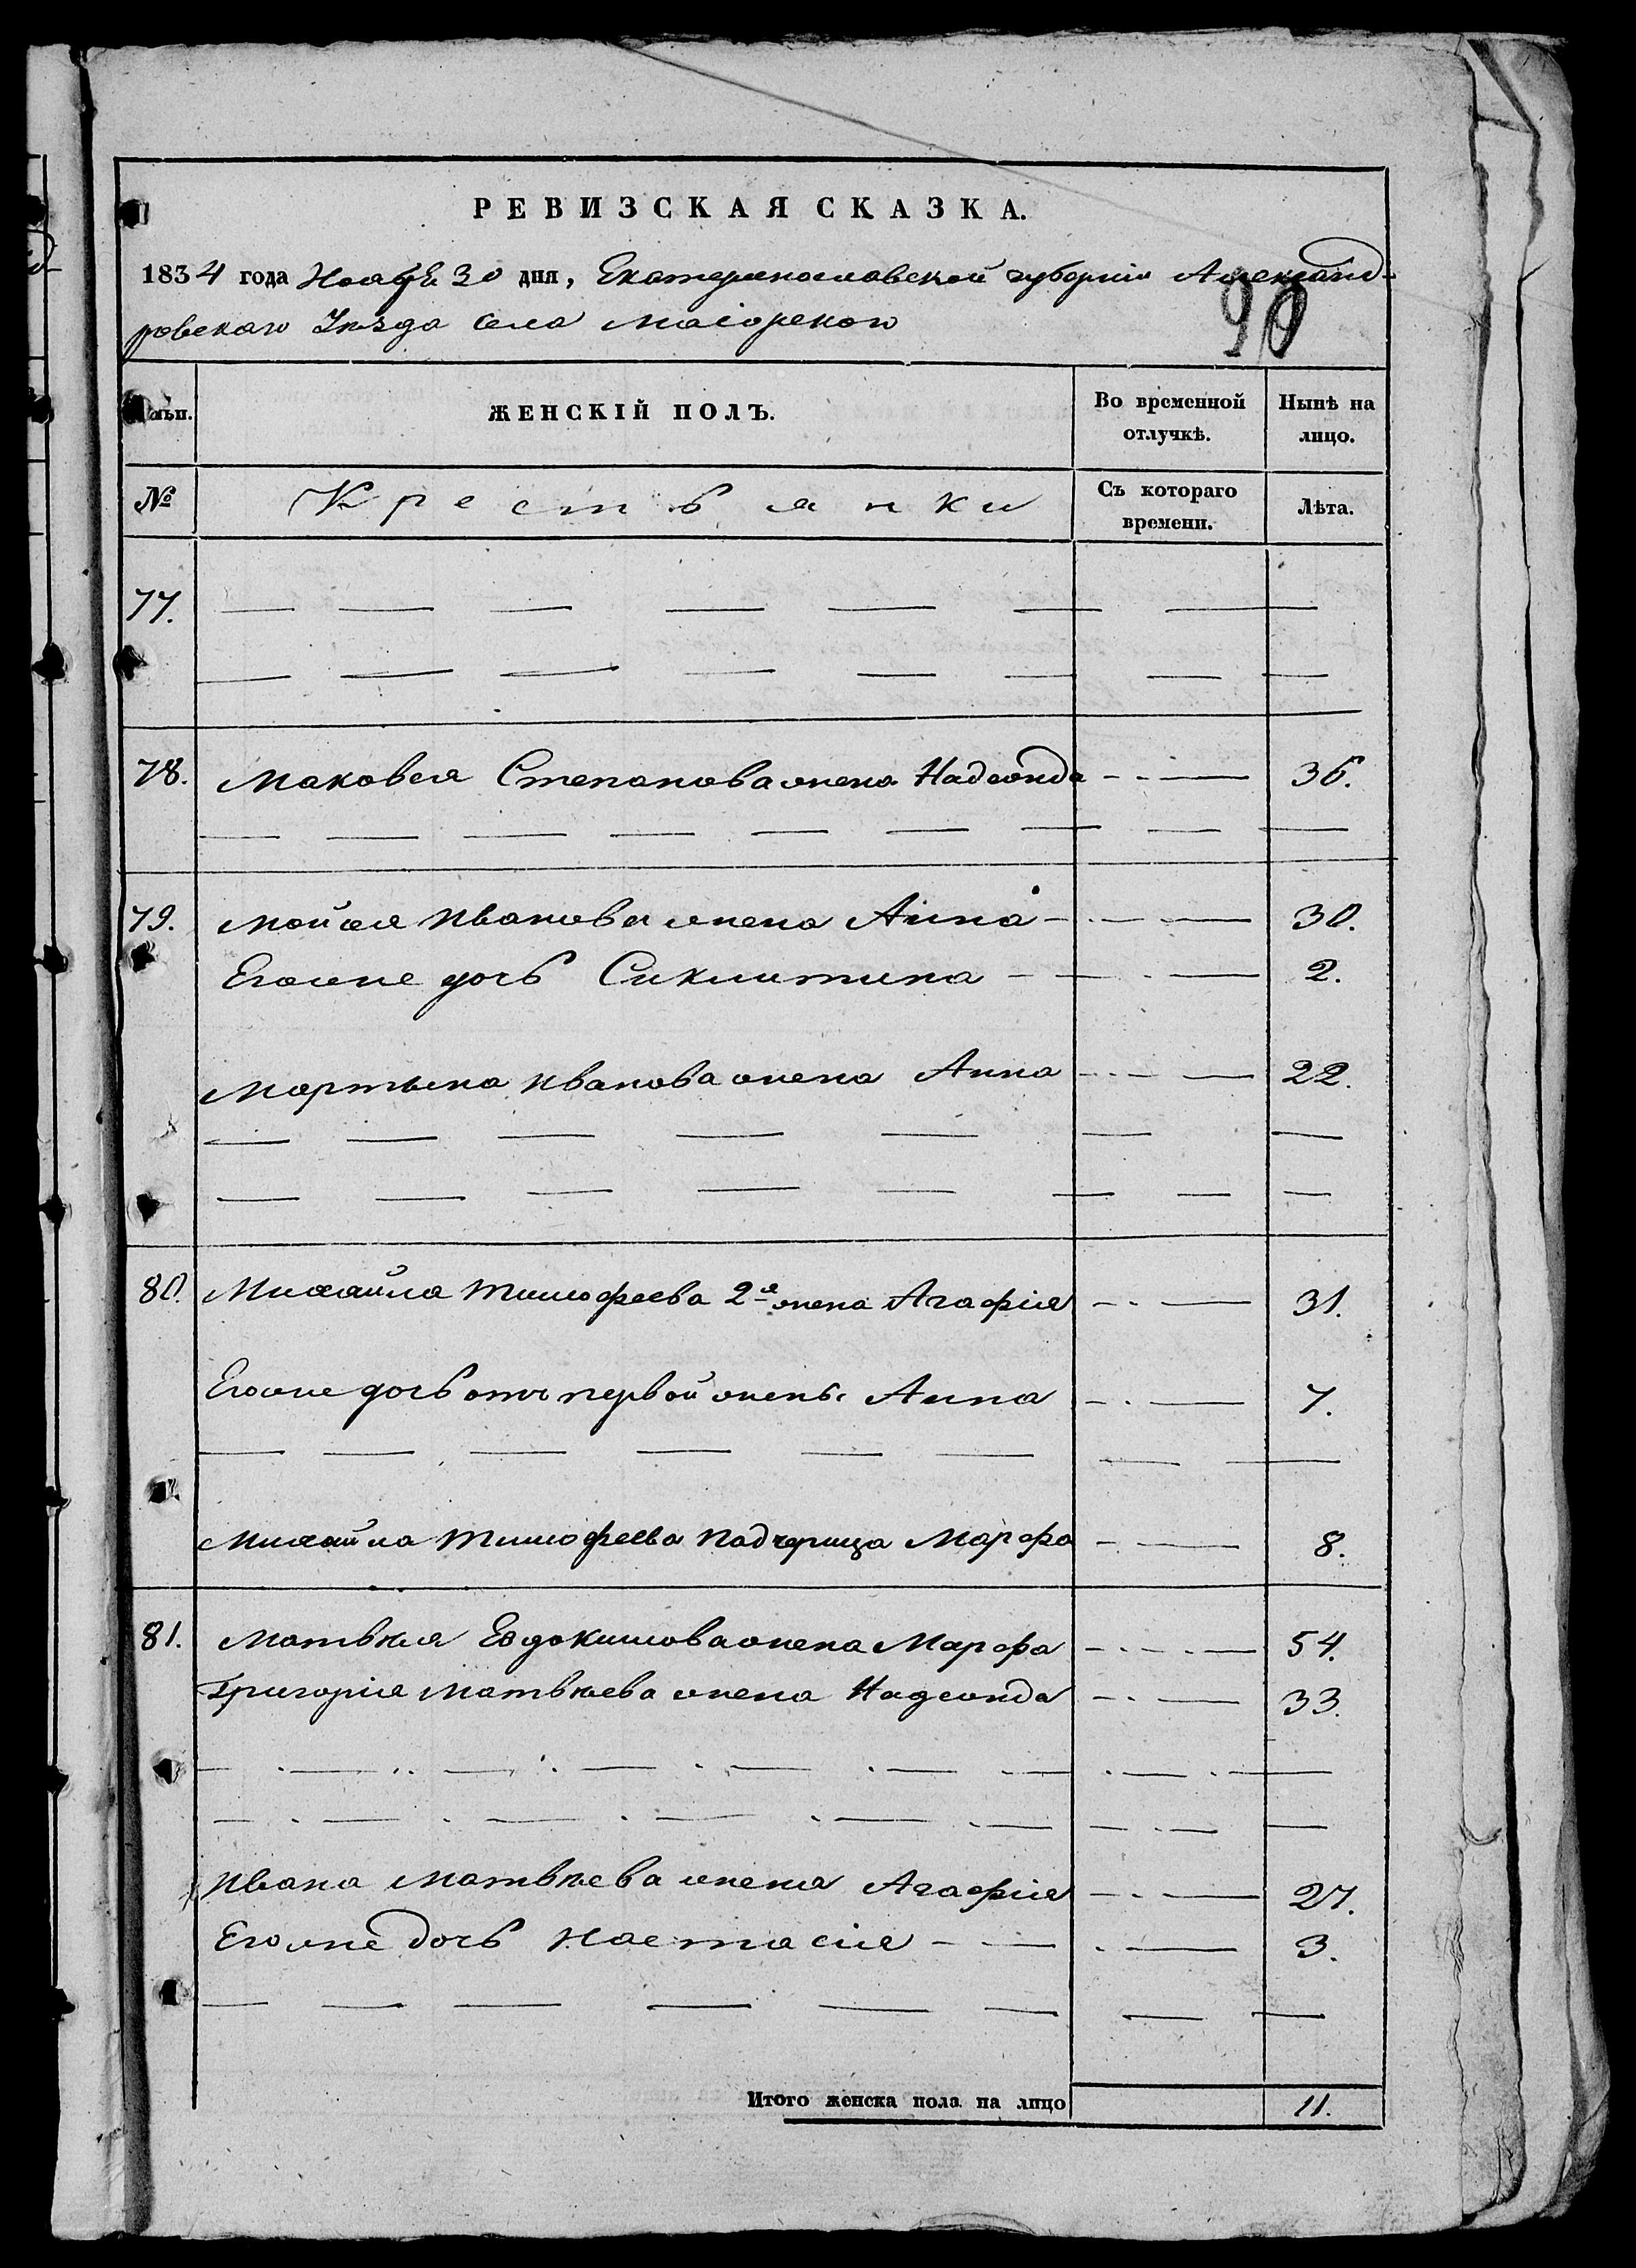 РЕВИЗСКАЯ СКАЗКА.
1834 года Ноября 30 дня, Екатеринославской губерніи Александ-
ровскаго Уѣзда Села Маіорскаго
90
Семьи.
ЖЕНСКІЙ ПОЛЪ.
Во временной отлучкѣ.
Нынѣ на лицо.
№
Крестьянки
Съ котораго времени.
Лѣта.
77.
78. Маковея Степанова жена Надежда 36.
79. Мойсея Иванова жена Анна 30.
Егоже дочь Сиклитина 2.
Мартына Иванова жена Анна 22.
80. Михайла Тимофеева 2я жена Агафія 31.
Егоже дочь отъ первой жены Анна 7.
Михайла Тимофеева падчерица Марфа 8.
81. Матвѣя Евдокимова жена Марфа 54.
Григорія Матвѣева жена Надежда 33.
Ивана Матвѣева жена Агафія 27.
Егоже дочь Настасія 3.
Итого женска пола на лицо 11.